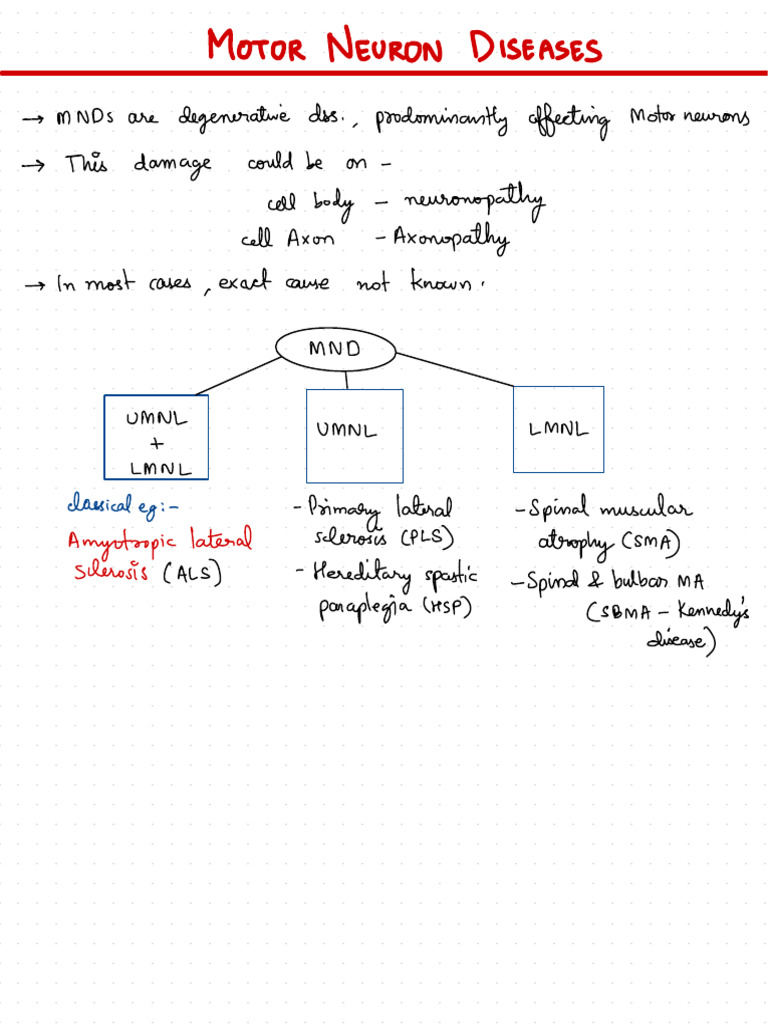 MOTOR NEURON DISEASES
→ MNDs are degenerative dss., predominantly affecting Motor neurons
→ This damage could be on -
cell body - neuronopathy
cell Axon - Axonopathy
→ In most cases, exact cause not known.
MND
UMNL
+
LMNL
classical eg:-
Amyotropic lateral
Sclerosis (ALS)
UMNL
- Primary lateral
sclerosis (PLS)
- Hereditary spastic
paraplegia (HSP)
LMNL
- Spinal muscular
atrophy (SMA)
- Spinal & bulbar MA
(SBMA - Kennedy's
disease)